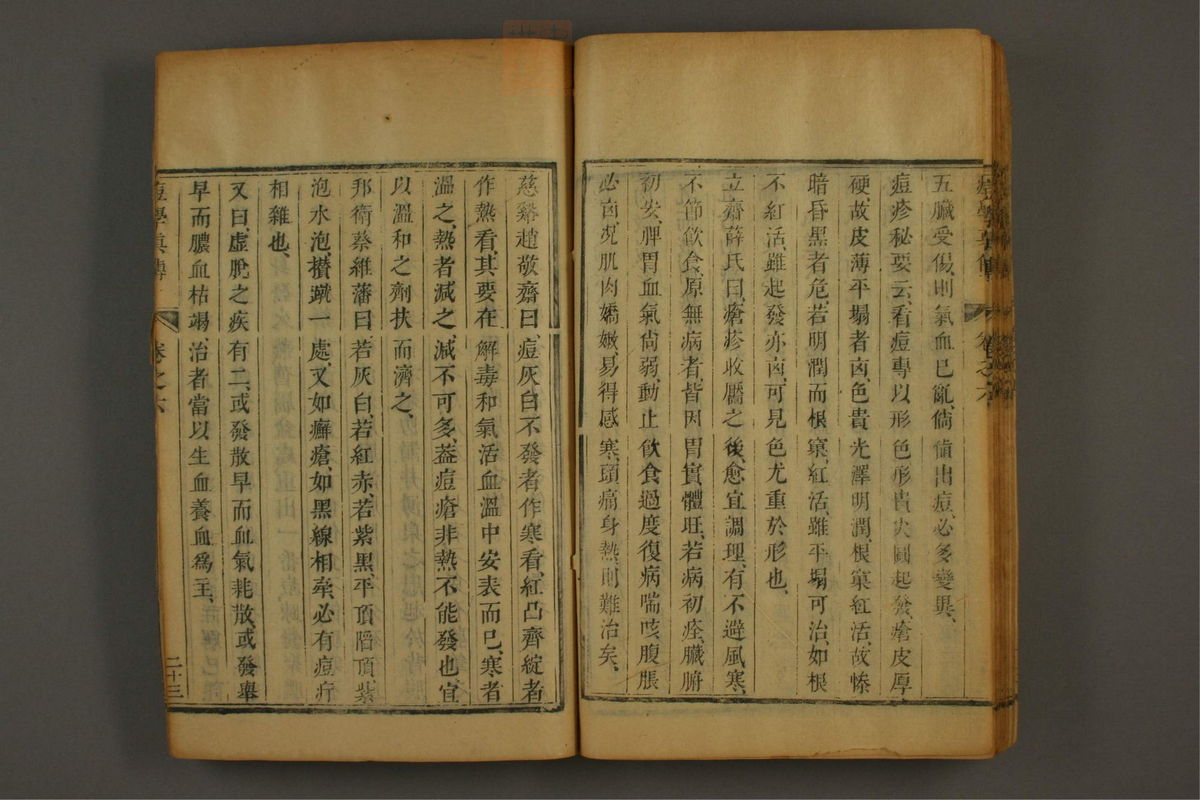 痘學真傳
卷之六
五臟受傷則氣血已亂倘値出痘必多變異、
痘疹秘要云、看痘專以形色、形貴尖圓起發、瘡皮厚
硬、故皮薄平塌者凶、色貴光澤明潤、根窠紅活、故慘
暗昏黑者危、若明潤而根窠紅活、雖平塌可治、如根
不紅活、雖起發亦凶、可見色尤重於形也、
立齋薛氏曰、瘡疹收靨之後、愈宜調理、有不避風寒、
不節飲食、原無病者、皆因胃實體旺、若病初痊、臟腑
初安、脾胃血氣尙弱、動止飲食過度、復病喘咳、腹脹
必凶、况肌肉嬌嫩、易得感寒、頭痛身熱、則難治矣、
慈谿趙敬齋曰、痘灰白不發者作寒看、紅凸齊綻者
作熱看、其要在解毒和氣活血溫中安表而已、寒者
溫之、熱者減之、減不可多、葢痘瘡非熱不能發也、宜
以溫和之劑扶而濟之、
邦衛蔡維藩曰、若灰白、若紅赤、若紫黑平頂陷頂紫
泡水泡、攢蹴一處、又如癬瘡、如黑線相牽、必有痘疔
相雜也、
又曰、虛脫之疾有二、或發散早而血氣耗散、或發舉
早而膿血枯竭、治者當以生血養血爲主、
痘學真傳
卷之六
二十三